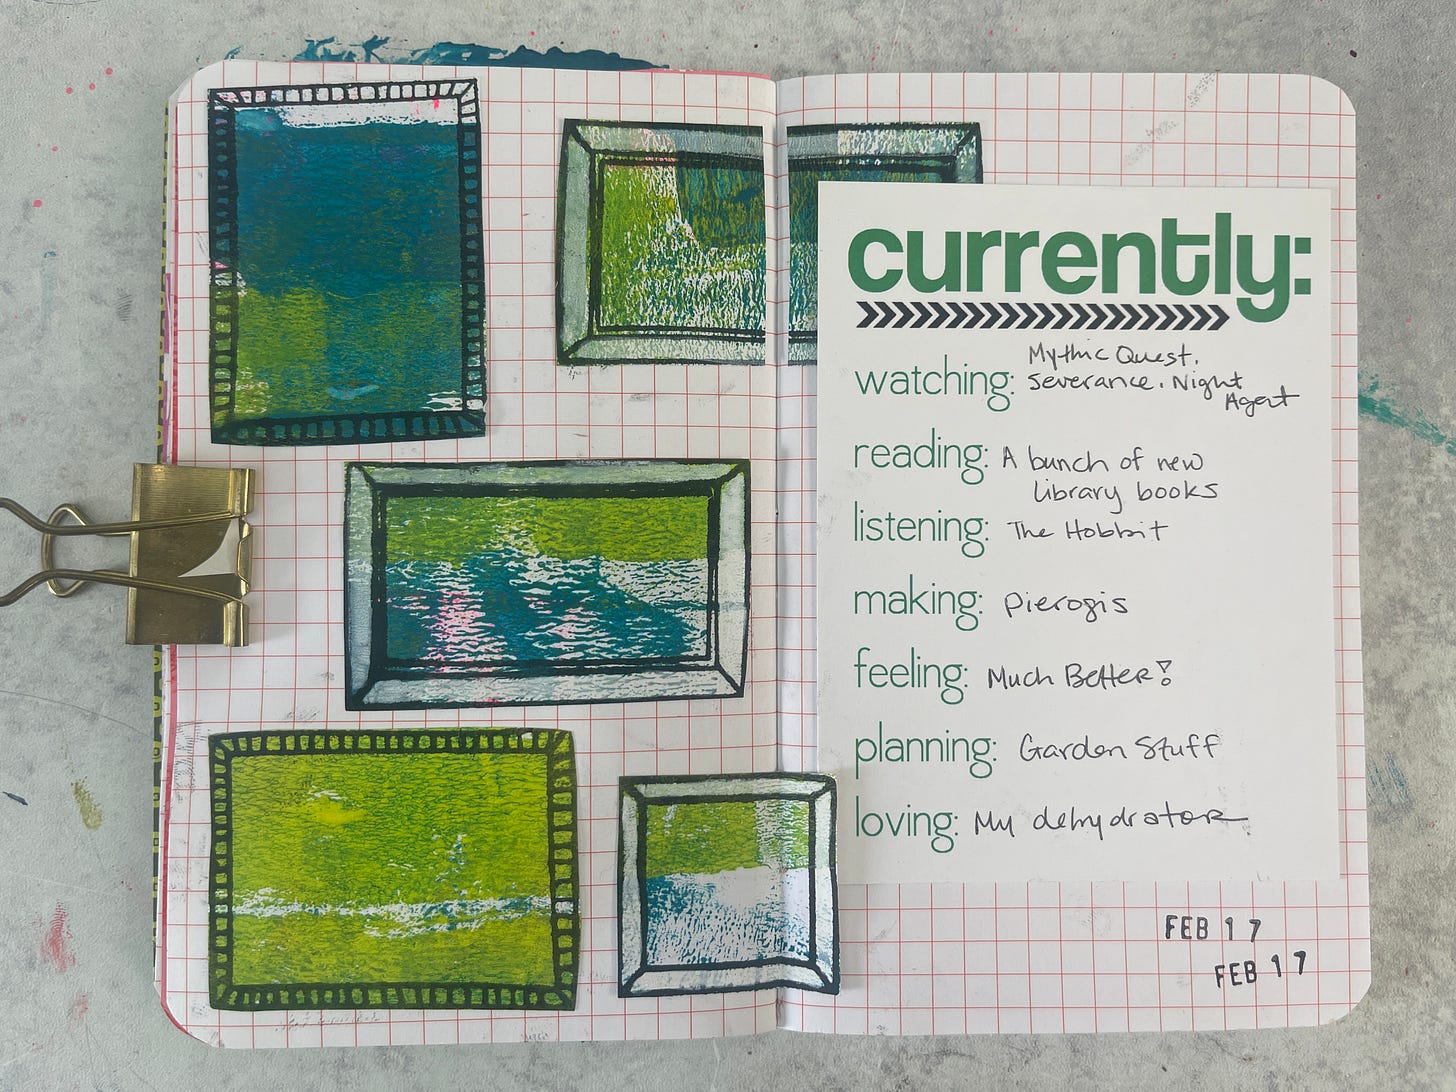 currently:
watching: Mythic Quest.
Severance. Night
Agent
reading: A bunch of new
library books
listening: The Hobbit
making: pierogis
feeling: Much Better!
planning: Garden Stuff
loving: My dehydrator
FEB 17
FEB 17